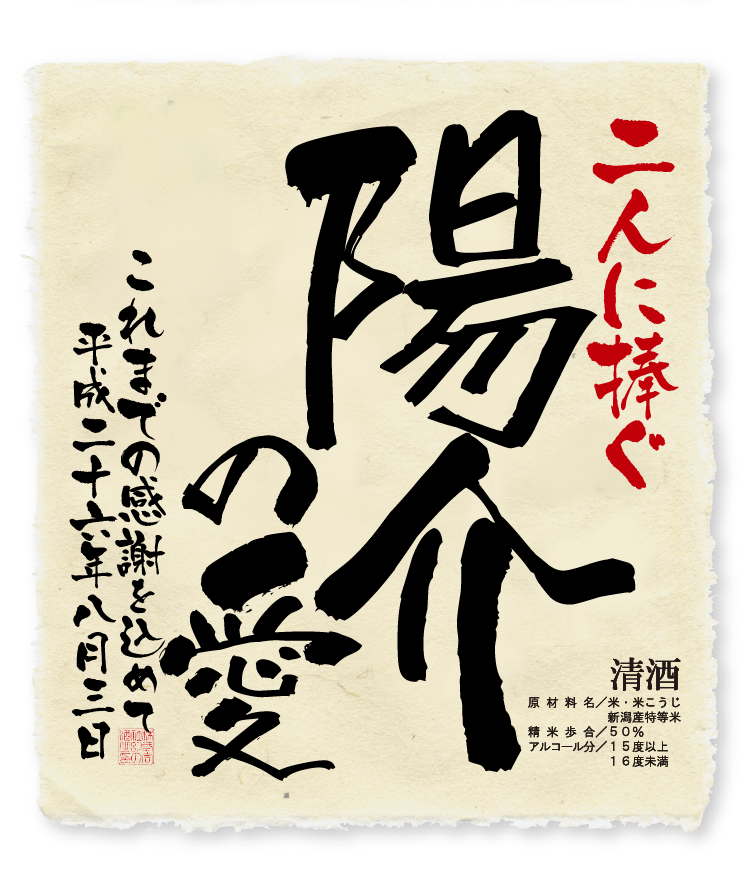 二人に捧ぐ
陽介
の愛
これまでの感謝を込めて
平成二十六年八月三日
清酒
原材料名／米・米こうじ
新潟産特等米
精米歩合／50％
アルコール分／15度以上
16度未満